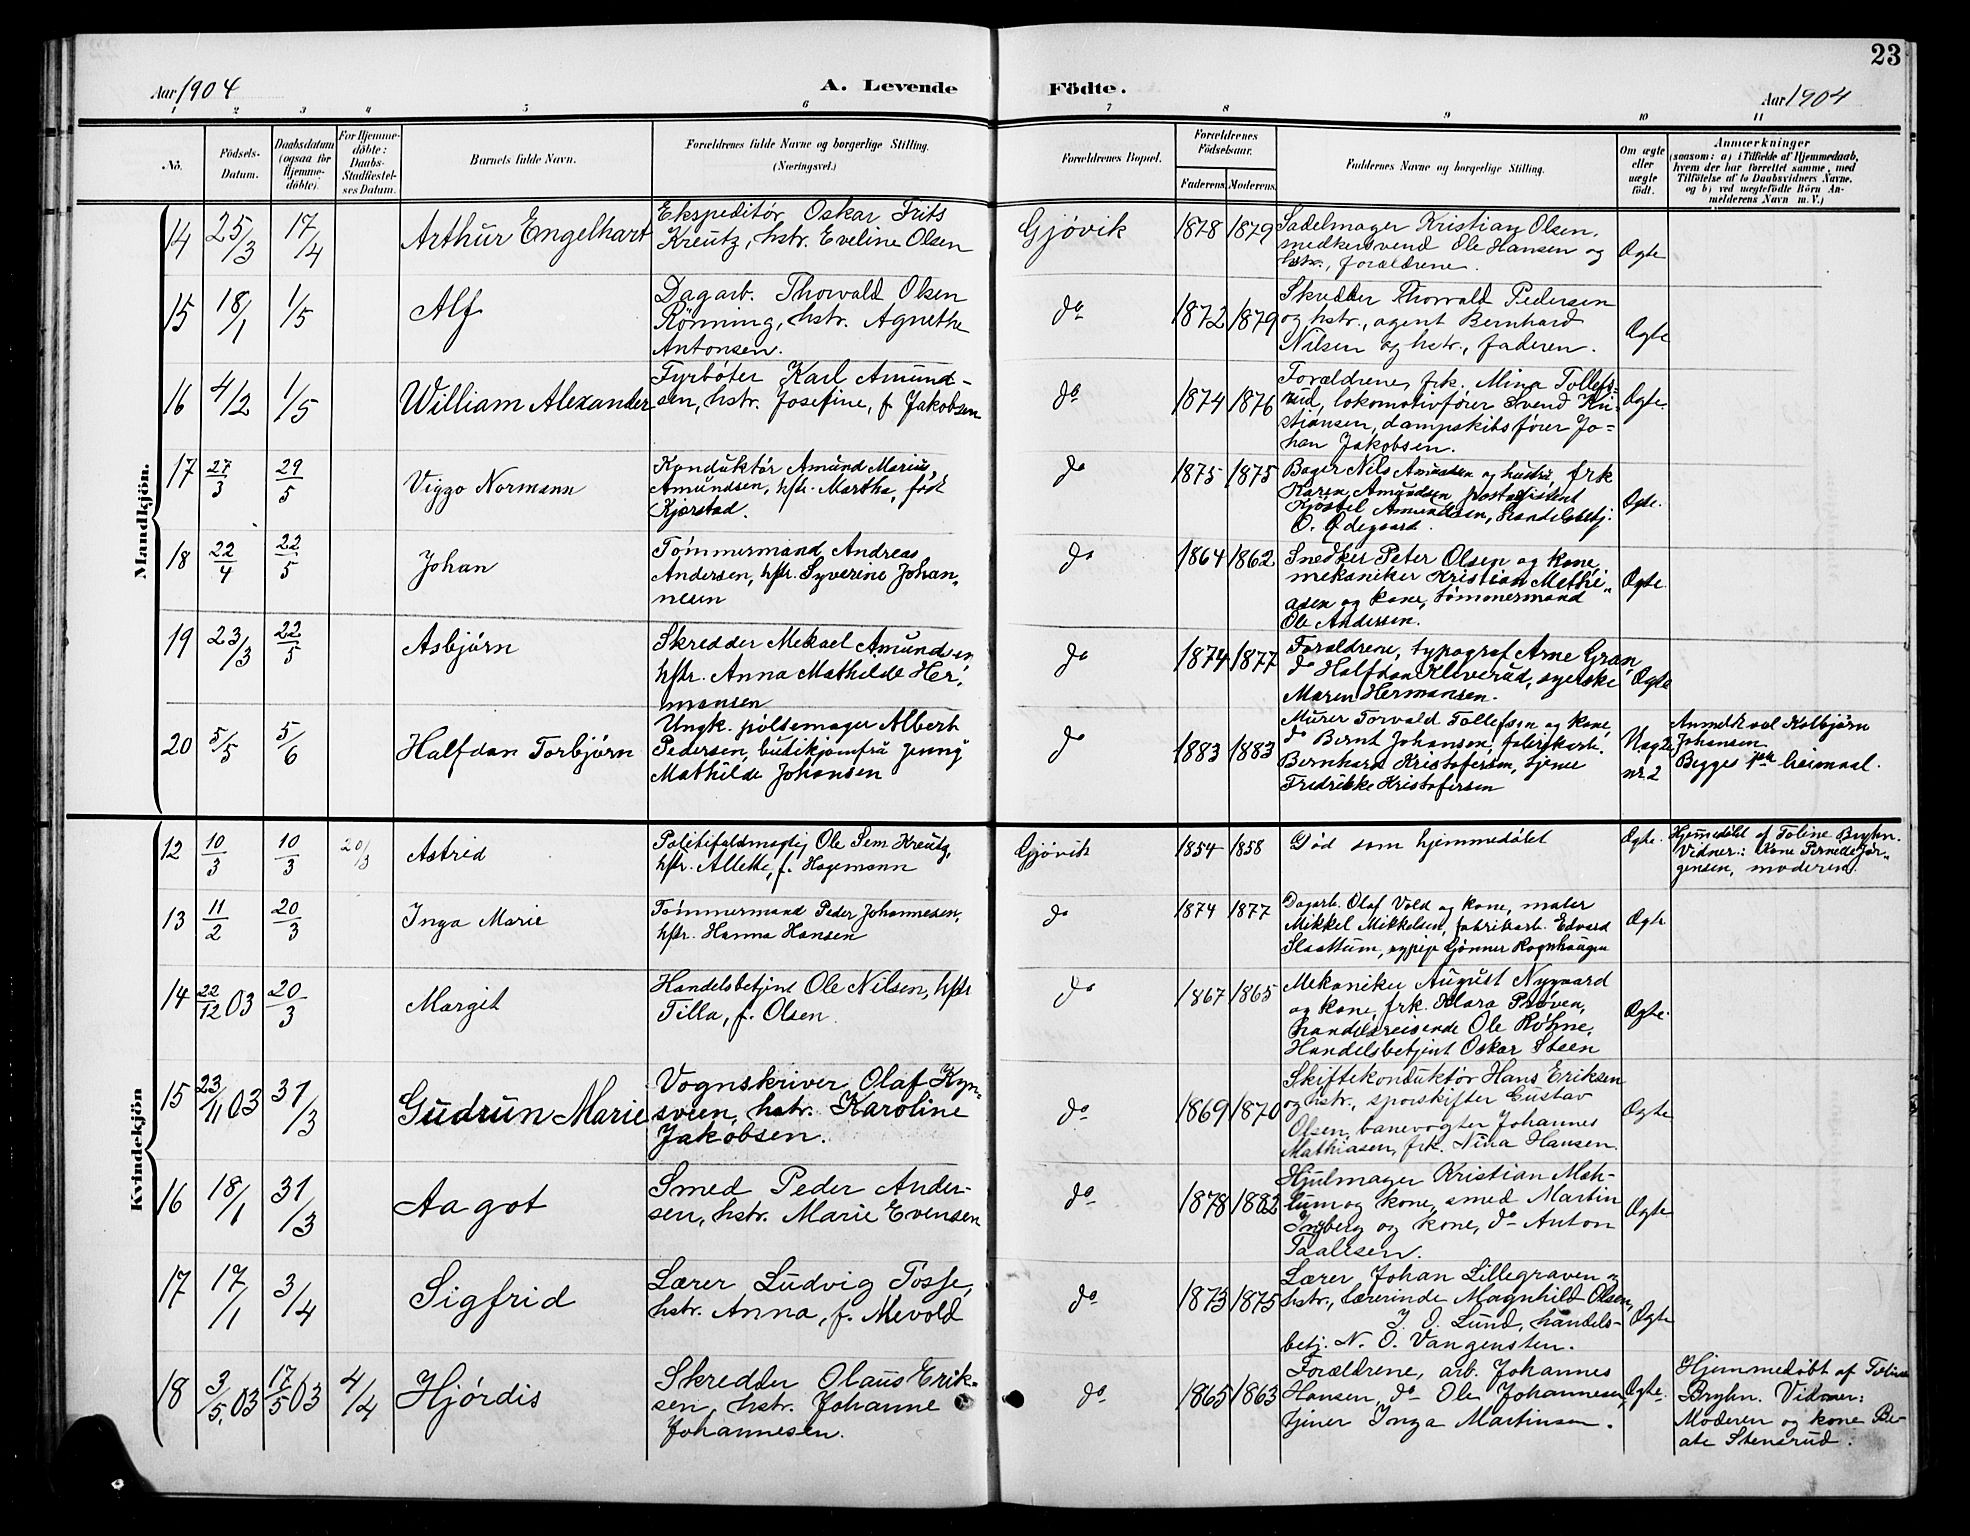 23
Aar 1904
A. Levende Födte.
Aar 1904
1 2 3 4 5 6 7 8 9 10 11
No.
Födsels-
Datum.
Daabsdatum
(ogsaa for
Hjemme-
döbte).
For Hjemme-
döbte:
Daabs-
Stadfæstel-
ses Datum.
Barnets fulde Navn.
Forældrenes fulde Navne og borgerlige Stilling.
(Næringsvei.)
Forældrenes Bopæl.
Forældrenes
Födselsaar.
Faderens. Moderens.
Faddernes Navne og borgerlige Stilling.
Om ægte
eller
uægte
födt.
Anmærkninger
(saasom: a) i Tilfælde af Hjemmedaab,
hvem der har forrettet samme, med
Tilföielse af to Daabsvidners Navne.
og b) ved uægtefödte Börn An-
melderens Navn m. V.)
Mandkjön.
14 25/3 17/4 Arthur Engelhart
Ekspeditör Oskar Frits
Kreutz, hstr. Eveline Olsen
Gjövik 1878 1879
Sadelmager Kristian Olsen,
Ole Hansen og
hstr., forældrene.
Ægte
15 18/1 1/5 Alf
Dagarb. Thorvald Olsen
Rönning, hstr. Agnethe
Antonsen.
do 1872 1879
Skredder Thorvald Pedersen
og hstr., agent Bernhard
Nilsen og hstr., faderen.
Ægte
16 4/2 1/5 William Alexander
Fyrböter Karl Amund-
sen, hstr. Josefine, f. Jakobsen
do 1874 1876
Forældrene, frk. Mina Tollefs-
rud, lokomotivförer Svend Kri-
stiansen, dampskibsförer Jo-
han Jakobsen.
Ægte.
17 27/3 29/5 Viggo Normann
Konduktör Amund Marius
Amundsen, hstr. Martha, född
Kjørstad.
do 1875 1875
Bager Nils Amundsen og hustru, frk
Karen Amundsen, postassistent
Kjöstel Amundsen, handelsbetj.
O. Ödegaard.
Ægte.
18 22/4 22/5 Johan
Tömmermand Andreas
Andersen, hstr. Syverine Johan-
nesen
do 1864 1862
Snedker Peter Olsen og kone,
mekaniker Kristian Mathi-
asen og kone, tömmermand
Ole Andersen.
Ægte.
19 23/3 22/5 Asbjörn
Skredder Mekael Amundsen
hstr. Anna Mathilde Her-
mansen
do 1874 1877
Forældrene, typograf Arne Gran,
do Halfdan Kliverud, syerske
Maren Hermansen.
Ægte
20 5/5 5/6 Halfdan Torbjörn
Ungk. pölsemager Albert
Pedersen, butikjomfru Jenny
Mathilde Johansen
do 1883 1883
Murer Torvald Tollefsen og kone,
do Bernt Johansen, fabrikarb.
Bernhard Kristofersen, tjener
Fredrikke Kristofersen
Uægte
nr. 2
Anmeldt ved Kolbjörn
Johansen
Begges
Kvindekjön
12 10/3 10/3 20/3 Astrid
Politifuldmægtig Ole Sem Kreutz,
hstr. Allette, f. Hagemann
Gjövik 1854 1858
Död som hjemmedöbt
Ægte.
Hjemmedöbt af Toline Bryhn.
Vidner: Kone Pernelle Jör-
gensen, moderen.
13 11/2 20/3 Inga Marie
Tömmermand Peder Johannesen,
hstr. Hanna Hansen
do 1874 1877
Dagarb. Olaf Vold og kone, maler
Mikkel Mikkelsen, fabrikarb. Edvard
Slaattum, sypige Gönner Rognhaugen
Ægte
14 22/12 03 20/3 Margit
Handelsbetjent Ole Nilsen, hstr
Tilla, f. Olsen.
do 1867 1865
Mekaniker August Nygaard
og kone, frk. Klara Pröven,
handelsreisende Ole Röhne,
Handelsbetjent Oskar Steen
Ægte.
15 23/11 03 31/3 Gudrun Marie
Vognskriver Olaf Kyn-
sveen, hstr. Karoline
Jakobsen.
do 1869 1870
Skiftekonduktör Hans Eriksen
og hstr., sporskifter Gustav
Olsen, banevogter Johannes
Mathiasen, frk. Nina Hansen.
Ægte
16 18/1 31/3 Aagot
Smed Peder Ander-
sen, hstr. Marie Evensen
do 1878 1882
Hjulmager Kristian Mæh-
lum og kone, smed Martin
Engberg og kone, do Anton
Paalesen.
Ægte
17 17/1 3/4 Sigfrid
Lærer Ludvig Tosse,
hstr. Anna, f. Mevold
do 1873 1875
Lærer Johan Lillegraven og
hstr., lærerinde Magnhild Olsen,
J. O. Lund, handels-
betj. N. O. Vangensten.
Ægte
18 3/5 03 17/5 03 4/4 Hjördis
Skredder Olaus Erik-
sen, hstr. Johanne
Johannesen.
do 1865 1863
Forældrene, arb. Johannes
Hansen, do Ole Johannesen,
tjener Inga Martinsen.
Ægte.
Hjemmedöbt af Toline
Bryhn. Vidner:
Moderen og kone Be-
ate Stensrud.